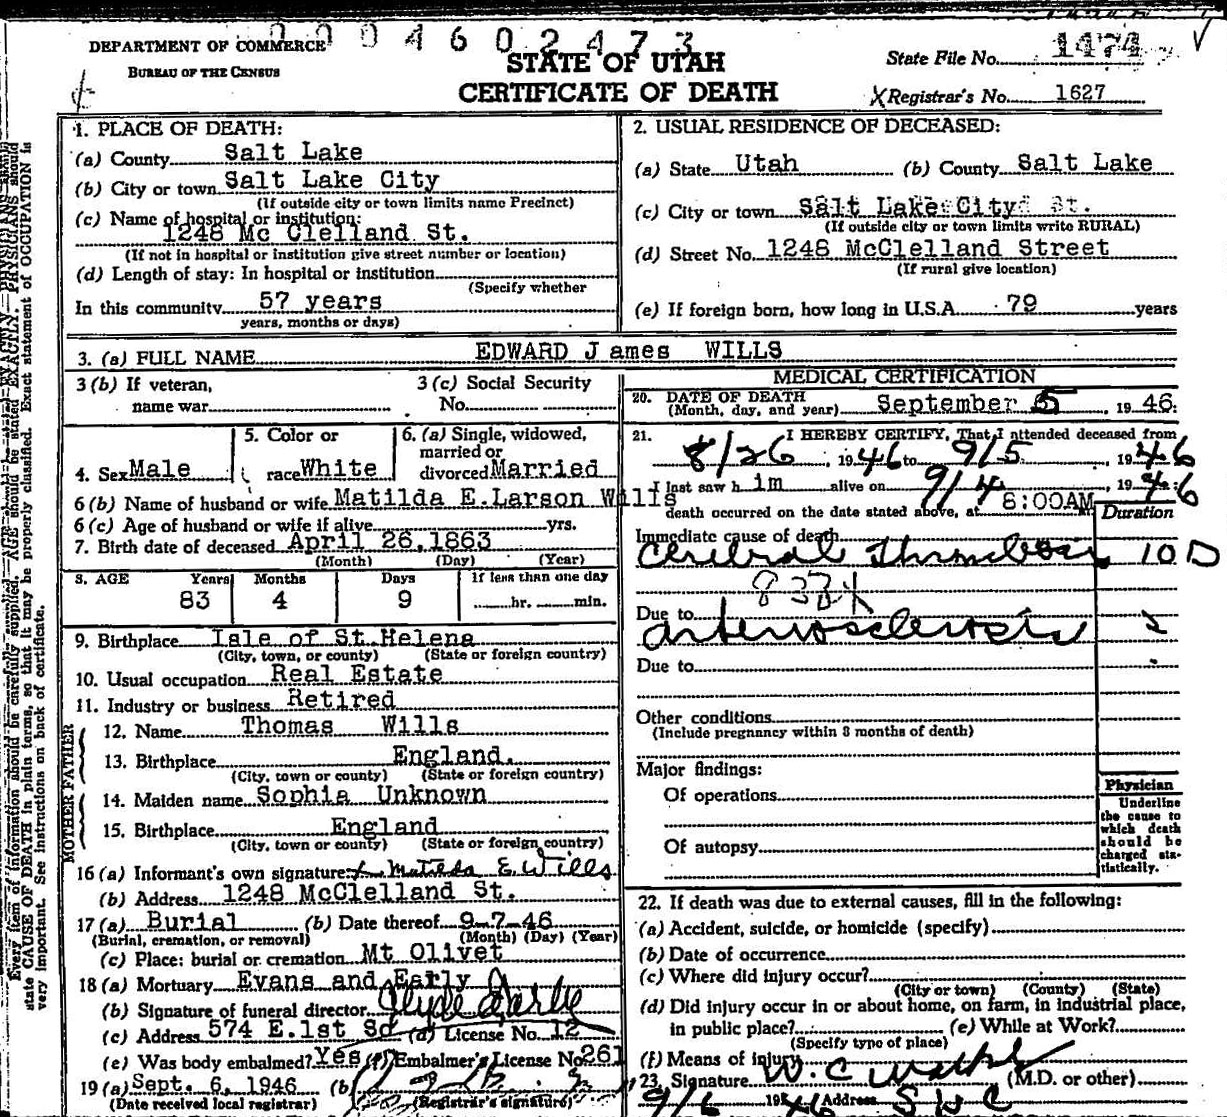 0004602473
DEPARTMENT OF COMMERCE
BUREAU OF THE CENSUS
STATE OF UTAH
CERTIFICATE OF DEATH
State File No. 1474
X Registrar's No. 1627
1. PLACE OF DEATH:
(a) County Salt Lake
(b) City or town Salt Lake City
(If outside city or town limits name Precinct)
(c) Name of hospital or institution:
1248 Mc Clelland St.
(If not in hospital or institution give street number or location)
(d) Length of stay: In hospital or institution
(Specify whether
In this community 57 years
years, months or days)
2. USUAL RESIDENCE OF DECEASED:
(a) State Utah (b) County Salt Lake
(c) City or town Salt Lake City
(If outside city or town limits write RURAL)
(d) Street No. 1248 McClelland Street
(If rural give location)
(e) If foreign born, how long in U.S.A. 79 years
3. (a) FULL NAME EDWARD J ames WILLS
3 (b) If veteran,
name war
3 (c) Social Security
No.
4. Sex Male
5. Color or
race White
6. (a) Single, widowed,
married or
divorced Married
6 (b) Name of husband or wife Matilda E.Larson Wills
6 (c) Age of husband or wife if alive yrs.
7. Birth date of deceased April 26,1863
(Month) (Day) (Year)
8. AGE Years Months Days If less than one day
83 4 9 hr. min.
9. Birthplace Isle of St.Helena
(City, town, or county) (State or foreign country)
10. Usual occupation Real Estate
11. Industry or business Retired
FATHER
12. Name Thomas Wills
13. Birthplace England.
(City, town or county) (State or foreign country)
MOTHER
14. Maiden name Sophia Unknown
15. Birthplace England
(City, town or county) (State or foreign country)
16 (a) Informant's own signature: x Matilda E. Wills
(b) Address 1248 McClelland St.
17 (a) Burial (b) Date thereof 9-7-46
(Burial, cremation, or removal) (Month) (Day) (Year)
(c) Place: burial or cremation Mt Olivet
18 (a) Mortuary Evans and Early
(b) Signature of funeral director Clyde Early
(c) Address 574 E.1st So (d) License No. 12
(e) Was body embalmed? Yes (f) Embalmer's License No. 261
19 (a) Sept. 6, 1946 (b)
(Date received local registrar) (Registrar's signature)
MEDICAL CERTIFICATION
20. DATE OF DEATH
(Month, day, and year) September 5, 1946.
21. I HEREBY CERTIFY, That I attended deceased from
8/26, 1946 to 9/5 1946
I last saw h im alive on 9/4, 1946
death occurred on the date stated above, at 8:00AM
Duration
Immediate cause of death
Cerebral Thrombosis 10 D
83B
Due to
arteriosclerosis
Due to
Other conditions
(Include pregnancy within 3 months of death)
Major findings:
Of operations
Of autopsy
Physician
Underline
the cause to
which death
should be
charged sta-
tistically.
22. If death was due to external causes, fill in the following:
(a) Accident, suicide, or homicide (specify)
(b) Date of occurrence
(c) Where did injury occur?
(City or town) (County) (State)
(d) Did injury occur in or about home, on farm, in industrial place,
in public place? (e) While at Work?
(Specify type of place)
(f) Means of injury
23. Signature W. C. Walker (M.D. or other)
9/6 1946 Address S L C
Every item of information should be carefully supplied. AGE should be stated EXACTLY. PHYSICIANS should
state CAUSE OF DEATH in plain terms, so that it may be properly classified. Exact statement of OCCUPATION is
very important. See instructions on back of certificate.